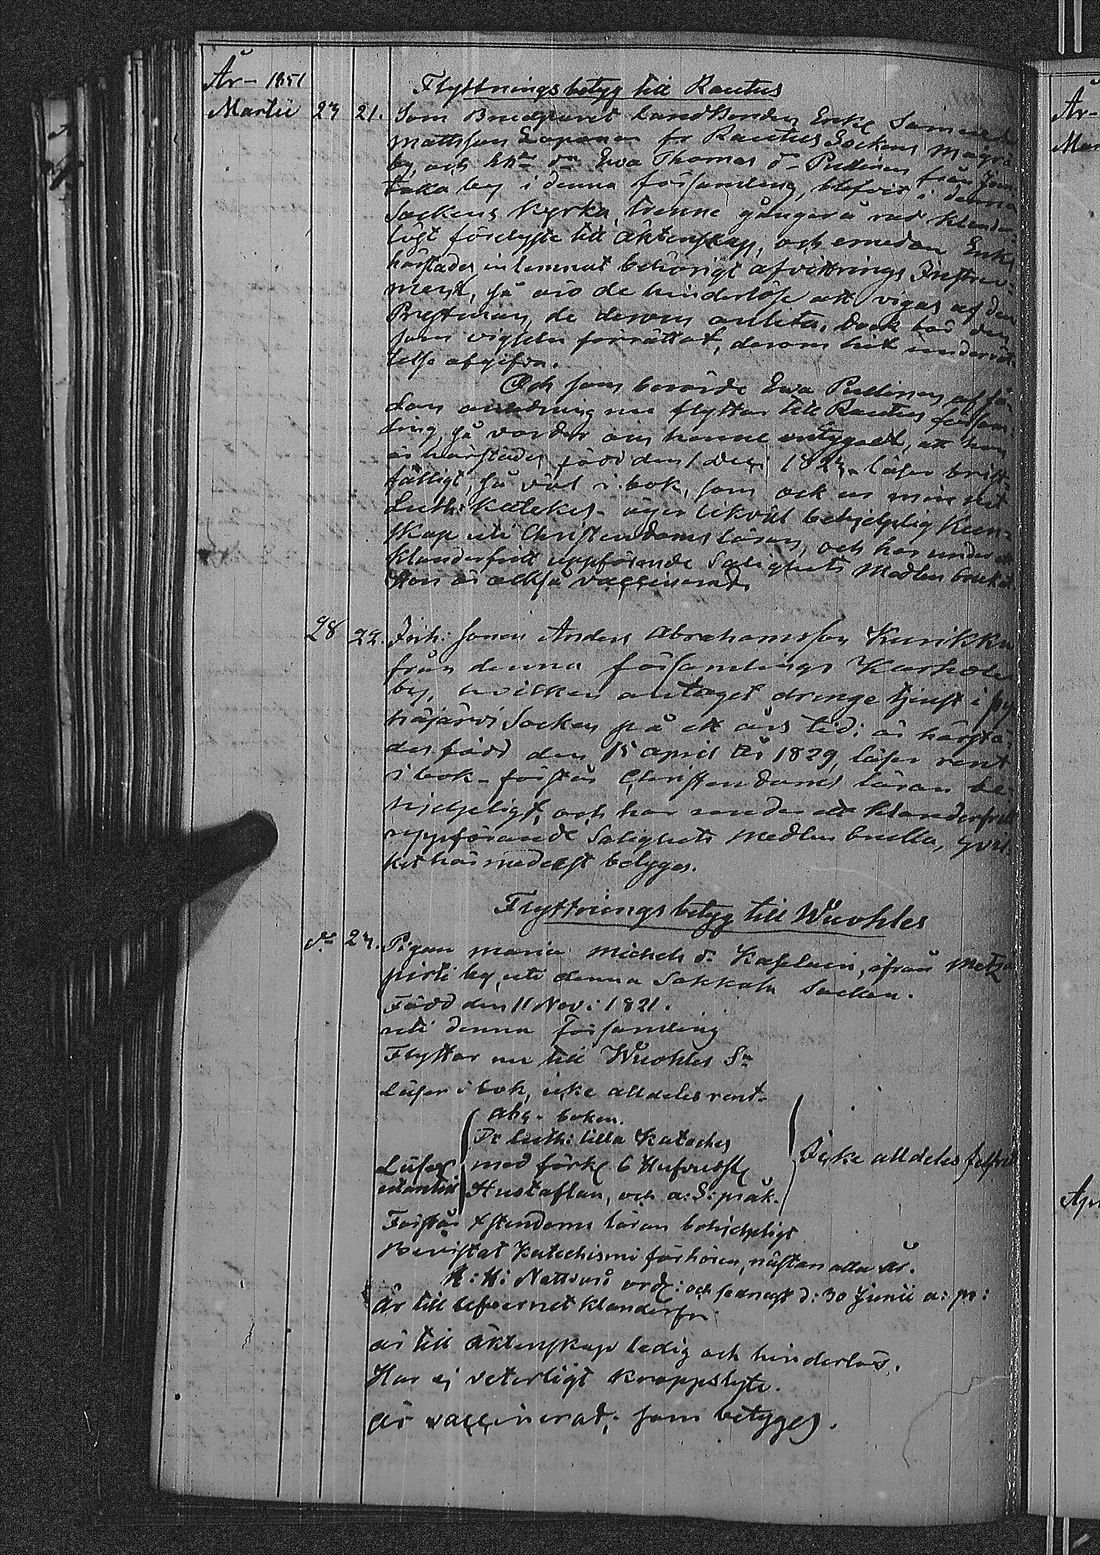 År 1851
Martii 23 21. Flyttningsbetyg till Rautus
Som Brudparet Landbonden Enkl. Samuel
Mattsson Loponen fr Rautus Sockens
by, och Eva Thomas dr Pullinen från
by i denna församling, blefvit i denna
Sockens Kyrka trenne gångor å rad
ligt förelyste till äktenskap, och emedan Enkl
härstädes inlemnat behörigt afvittrings Instru-
ment, så äro de hinderlöse att vigas af den
Prestman, de derom anlita, dock bör den
som vigseln förrättat, derom hit underrät-
telse afgifva.
Och som berörde Eva Pullinen af så-
dan anledning nu flyttar till Rautus försam-
ling, så varder om henne intygadt, att hon
är härstädes född den 1 Dec. läser
fälligt så väl i bok, som ock ur minnet
Luth: Kateches äger likväl behjelplig kun-
skap uti Christendoms läran, och har under ett
klanderfritt uppförande Salighets Medlen brukat
Hon är altså vaccinerad.
28 22. Anders Abrahamsson Kurikka
från denna församlings
by, hvilken antagit drenge tjenst i Py-
häjärvi Socken på ett års tid: är härstä-
des född den 15 April År 1829, läser rent
i bok - förstår Christendoms läran be-
hjelpeligt, och har under ett klanderfritt
uppförande Salighets Medlen bruka, hvil-
ket härmedelst betygas.
Flyttningsbetyg till Wuohles
do 23. Pigan Maria Michels dr från Metsä-
pirti by, uti denna Sakkola Socken.
Född den 11 Nov: 1821.
uti denna församling
Flyttar nu till Wuohles Sn
Läser i bok, icke alldeles rent.
Abc-boken.
Dr Luth: lilla Kateches
Läser utantill med förkl. Hufvudst
Hustaflan, och a: S: språk. Icke alldeles felfritt
Förstår Xstendoms läran behjelpligt
Bevistat Katechismi förhören, nästan alla År.
H: H: Nattvard och senast d: 30 Junii a: pr:
Är till lefvernet klanderfri
är till äktenskap ledig och hinderlös.
Har ej veterligt kroppslyte.
är vaccinerad; som betyges.